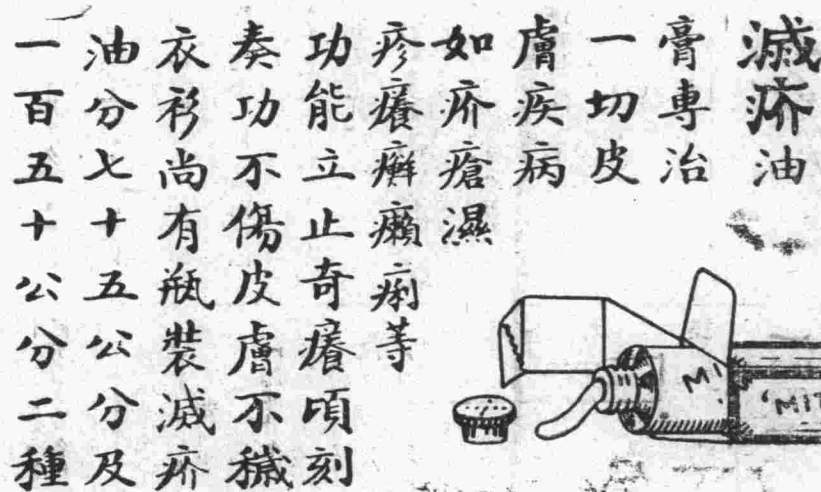 滅疥油
膏專治
一切皮
膚疾病
如疥瘡濕
疹癢癬癩痢等
功能立止奇癢頃刻
奏功不傷皮膚不穢
衣衫尚有瓶裝滅疥
油分七十五公分及
一百五十公分二種
MI
"MIT